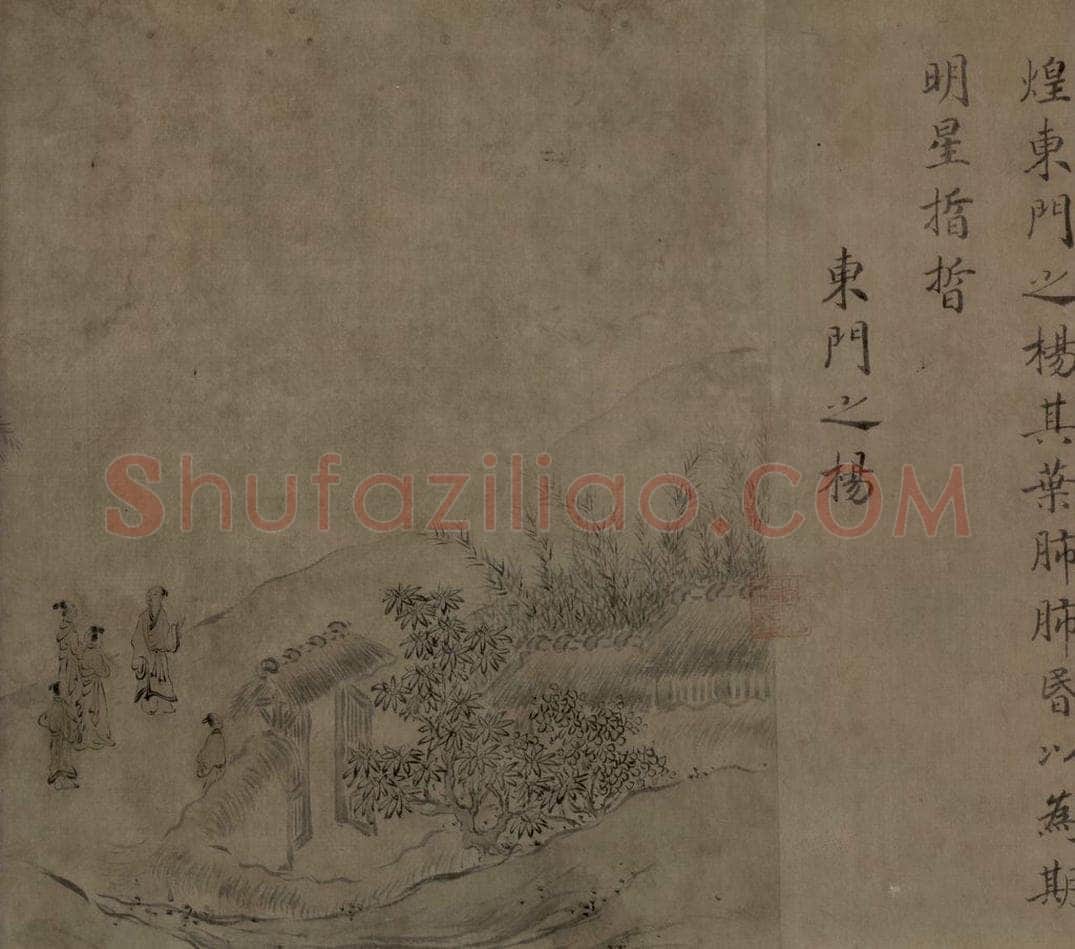 煌東門之楊其葉肺肺昬以爲期
明星晢晢
東門之楊
Shufaziliao.COM